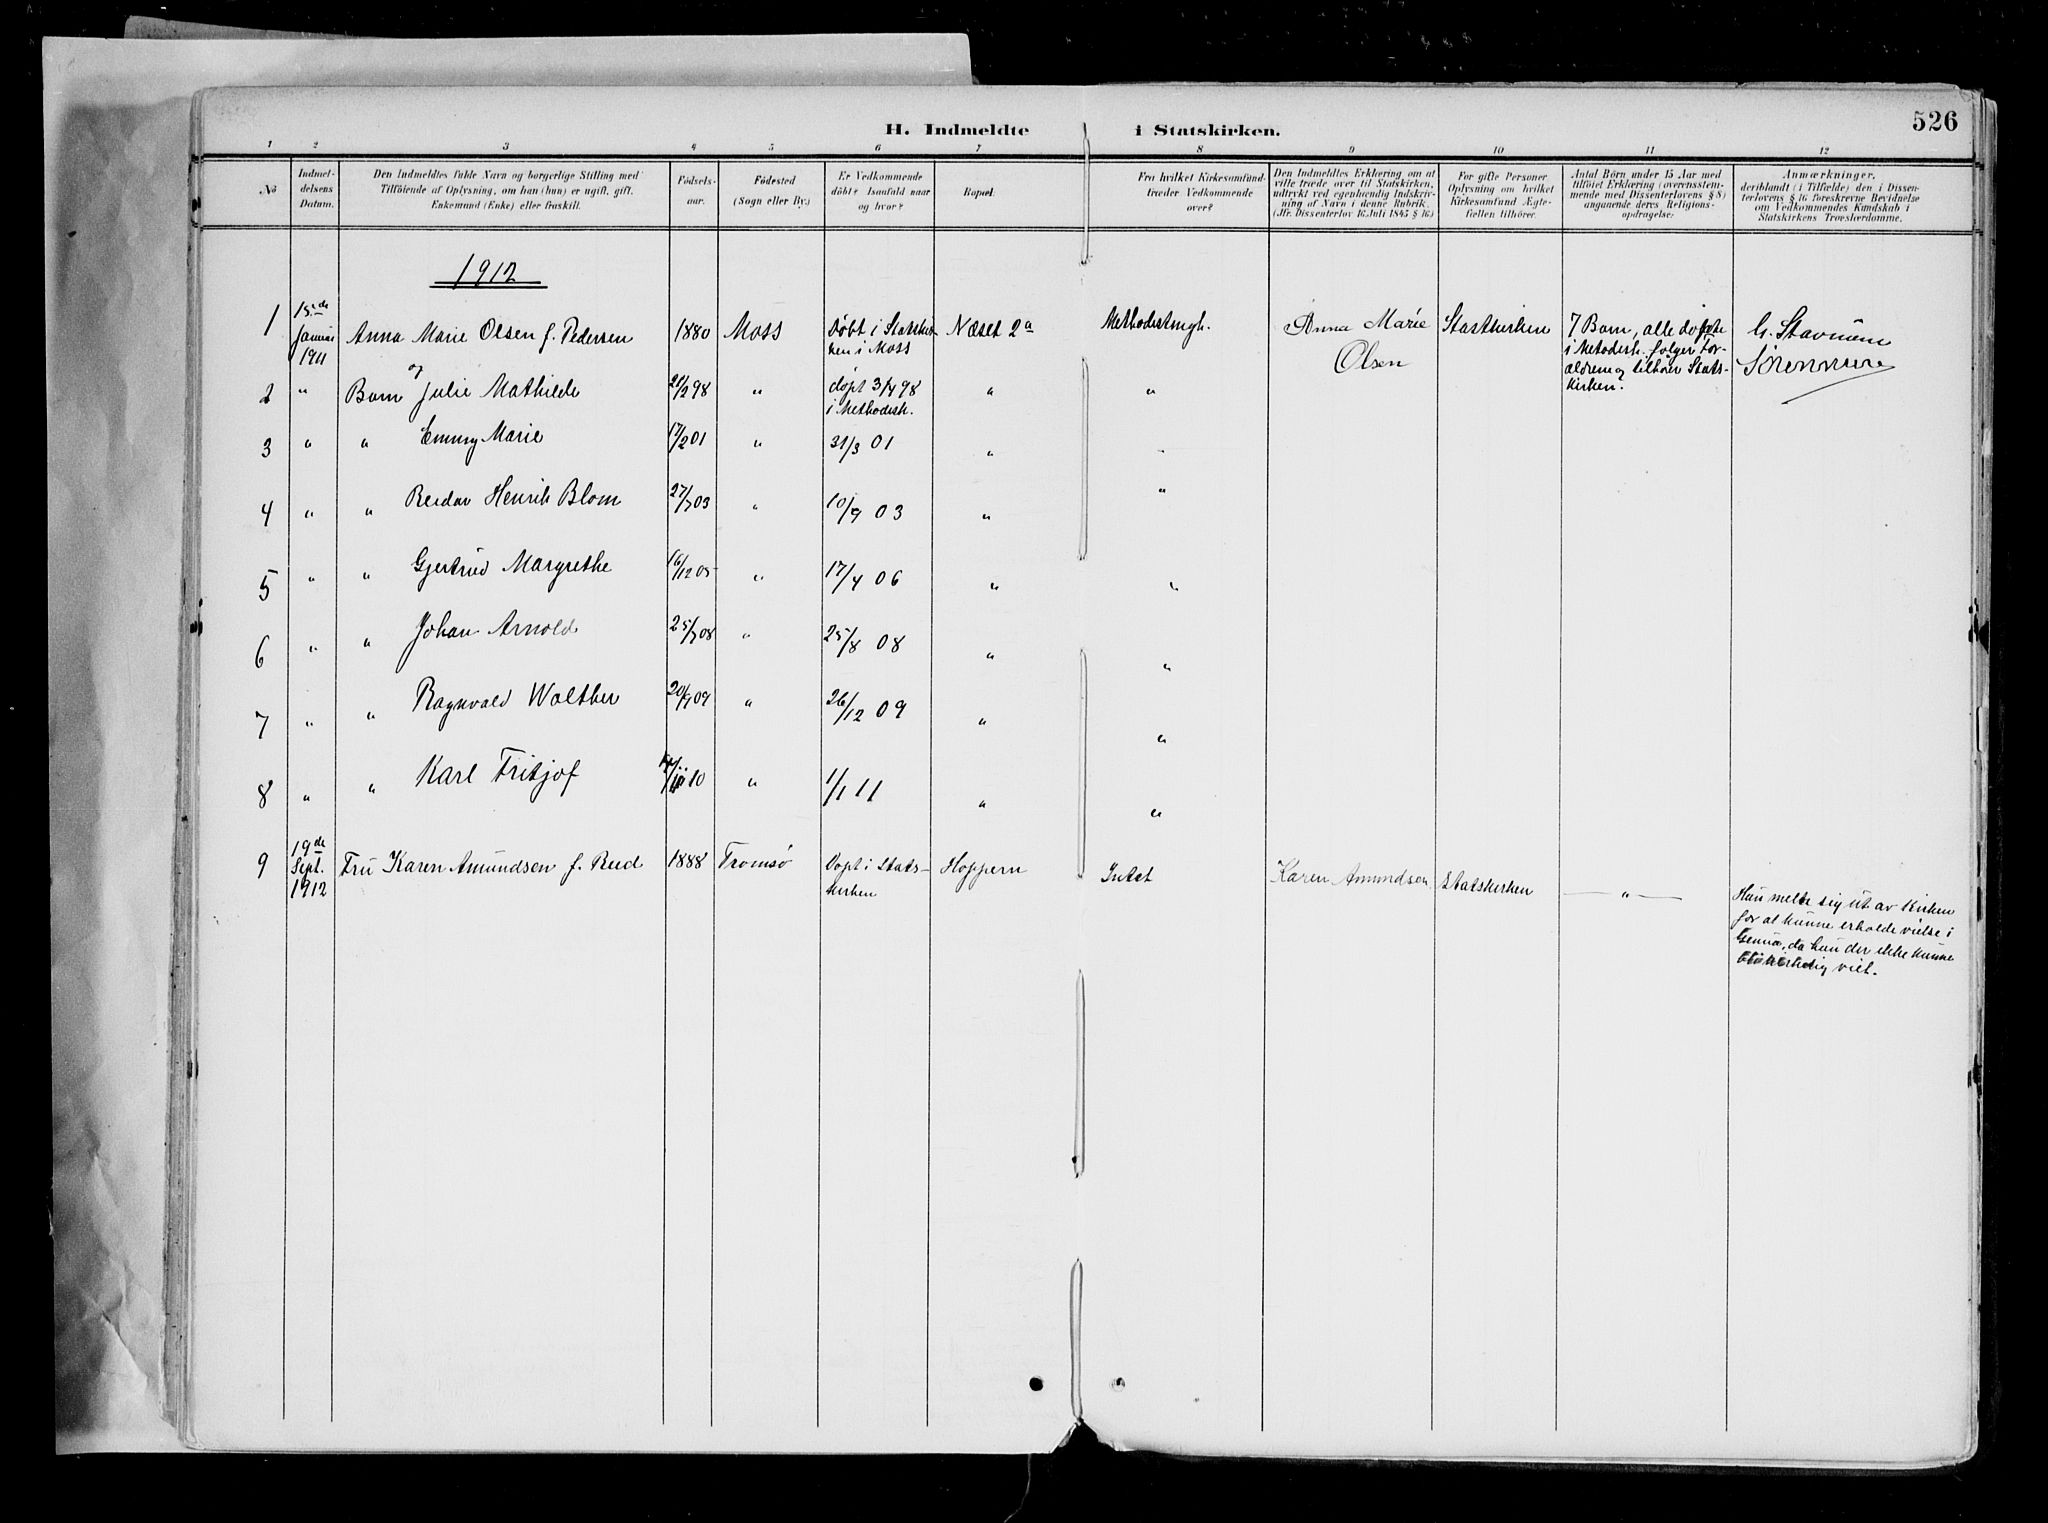 H. Indmeldte i Statskirken.
526
1 2 3 4 5 6 7 8 9 10 11 12
No
Indmel-
delsens
Datum.
Den Indmeldtes fulde Navn og borgerlige Stilling med
Tilföiende af Oplysning, om han (hun) er ugift, gift,
Enkemand (Enke) eller fraskilt.
Födsels-
aar.
Födested
(Sogn eller By.)
Er Vedkommende
döbt? Isaafald naar
og hvor?
Bopæl.
Fra hvilket Kirkesamfund
træder Vedkommende
over?
Den Indmeldtes Erklæring, om at
ville træde over til Statskirken,
udtrykt ved egenhændig Indskriv-
ning af Navn i denne Rubrik.
(Jfr. Dissenterlov 16 Juli 1845 § 16)
For gifte Personer
Oplysning om hvilket
Kirkesamfund Ægte-
fællen tilhörer.
Antal Börn under 15 Aar med
tilföiet Erklæring (overensstem-
mende med Dissenterlovens § 8)
angaaende deres Religions-
opdragelse:
Anmærkninger,
deriblandt (i Tilfælde) den i Dissen-
terlovens § 16 foreskrevne Bevidnelse
om Vedkommendes Kundskab i
Statskirkens Troeslærdomme.
1912
1 15.de Januar 1911 Anna Marie Olsen f. Pedersen 1880 Moss Døbt i Statskir- Næset 2a Methodistmgh. Anna Marie Statskirken 7 Barn, alle døpte G.
ken i Moss Olsen i Metodistk. følger For-
ældrene og tilhører Stats-
kirken.
og
2 " Barn Julie Mathilde 21/2 98 " døpt 3/4 98 " "
i Methodistk.
3 " " Emmy Marie 17/2 01 " 31/3 01 " "
4 " " Reidar Henrik Blom 27/7 03 " 10/9 03 " "
5 " " Gjertrud Margrethe 16/12 05 " 17/4 06 " "
6 " " Johan Arnold 25/7 08 " 25/8 08 " "
7 " " Ragnvald Walther 20/9 09 " 26/12 09 " "
8 " " Karl Fritjof 10 " 1/1 11 " "
9 19de Sept. 1912 Fru Karen Amundsen f. Rud 1888 Tromsø Døpt i Stats- Hoppern Intet Karen Amundsen Statskirken — " —
kirken
Hun meldte sig ut av Kirken
for at kunne erholde vielse i
Genua, da hun der ikke kunne
bli kirkelig viet.